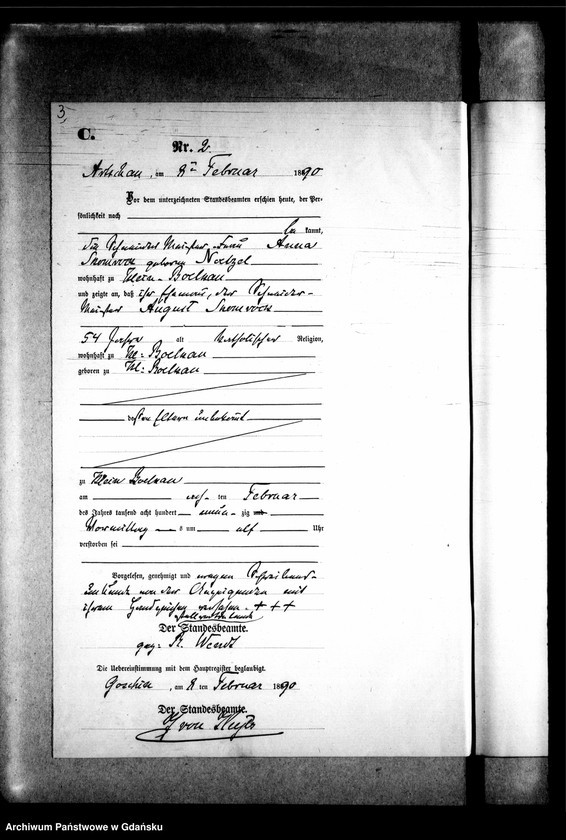 3.
C.
Nr. 2.
am 8ten Februar 1890
Vor dem unterzeichneten Standesbeamten erschien heute, der Per-
sönlichkeit nach
be kannt,
die Schneider Meister Frau Anna
geborene Netzel
wohnhaft zu Klein-Boelkau
und zeigte an, daß ihr Ehemann, der Schneider-
Meister August
54 Jahre alt katholischer Religion,
wohnhaft zu Kl: Boelkau
geboren zu Kl: Boelkau
dessen Eltern unbekannt
zu Klein Boelkau
am ten Februar
des Jahres tausend acht hundert neun- zig und
Vormittag s um elf Uhr
verstorben sei
Vorgelesen, genehmigt und wegen Schreibens-
unkunde von der Anzeigenden mit
ihrem Handzeichen versehen. + + +
Der Standesbeamte.
gez: Wendt
Die Uebereinstimmung mit dem Hauptregister beglaubigt.
am 8 ten Februar 1890
Der Standesbeamte.
von
Archiwum Państwowe w Gdańsku